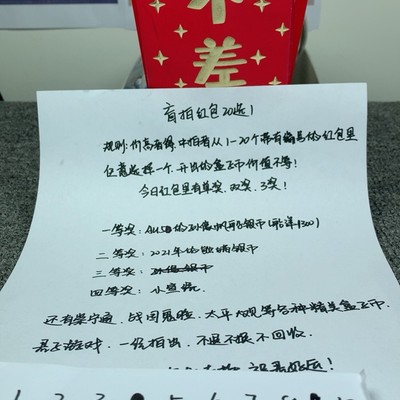 不
差
盲拍红包20选1
规则:价高者得,中拍者从1-20个带有编号的红包里
任意选择一个,开出的盒子币价值不等!
今日红包里有单奖,双奖,3奖!
一等奖:AU50的孙像帆船银币(船洋1300)
二等奖:2021年的熊猫银币
三等奖:
四等奖:小宣统
还有崇宁通宝,战国鬼脸,太平天国等各种精美盒子币
暴击游戏,一经拍出,不退不换不回收
1 2 3 5 6 7 8